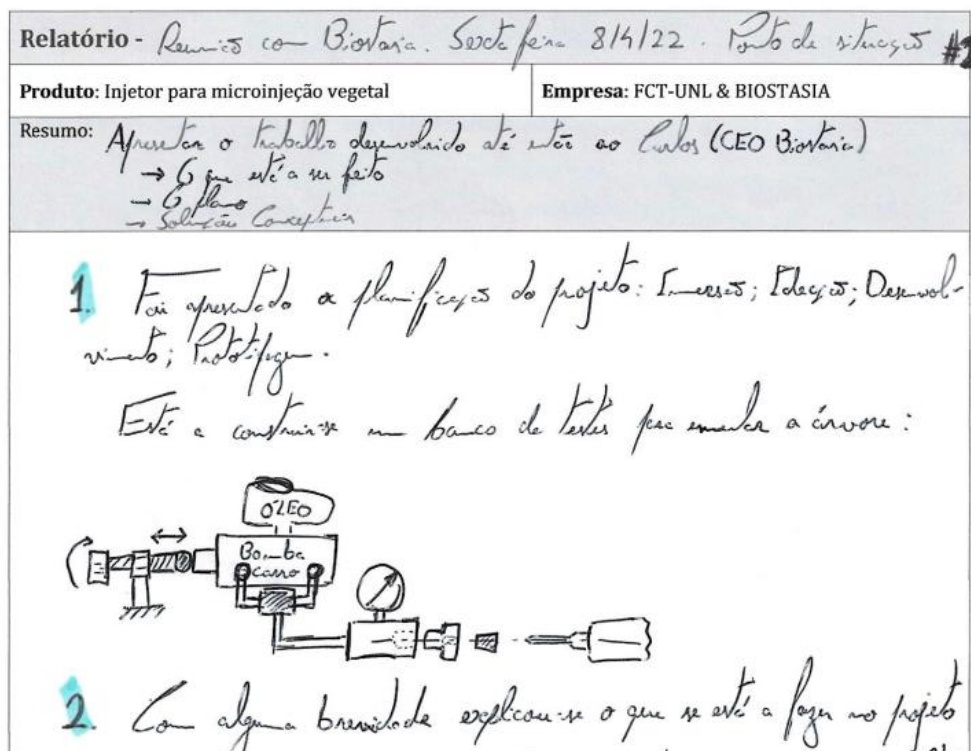 Relatório - Reunião com Biostasia. Sexta feira 8/4/22. Ponto de situação #2
Produto: Injetor para microinjeção vegetal
Empresa: FCT-UNL & BIOSTASIA
Resumo: Apresentar o trabalho desenvolvido até então ao Carlos (CEO Biostasia)
→ O que está a ser feito
→ O plano
→ Solução Conceptual
1. Foi apresentado a planificação do projeto: Imersão; Ideação; Desenvol-
vimento; Prototipagem.
Está a construir-se um banco de testes para emular a árvore:
ÓLEO
Bomba
carro
2. Com alguma brevidade explicou-se o que se está a fazer no projeto